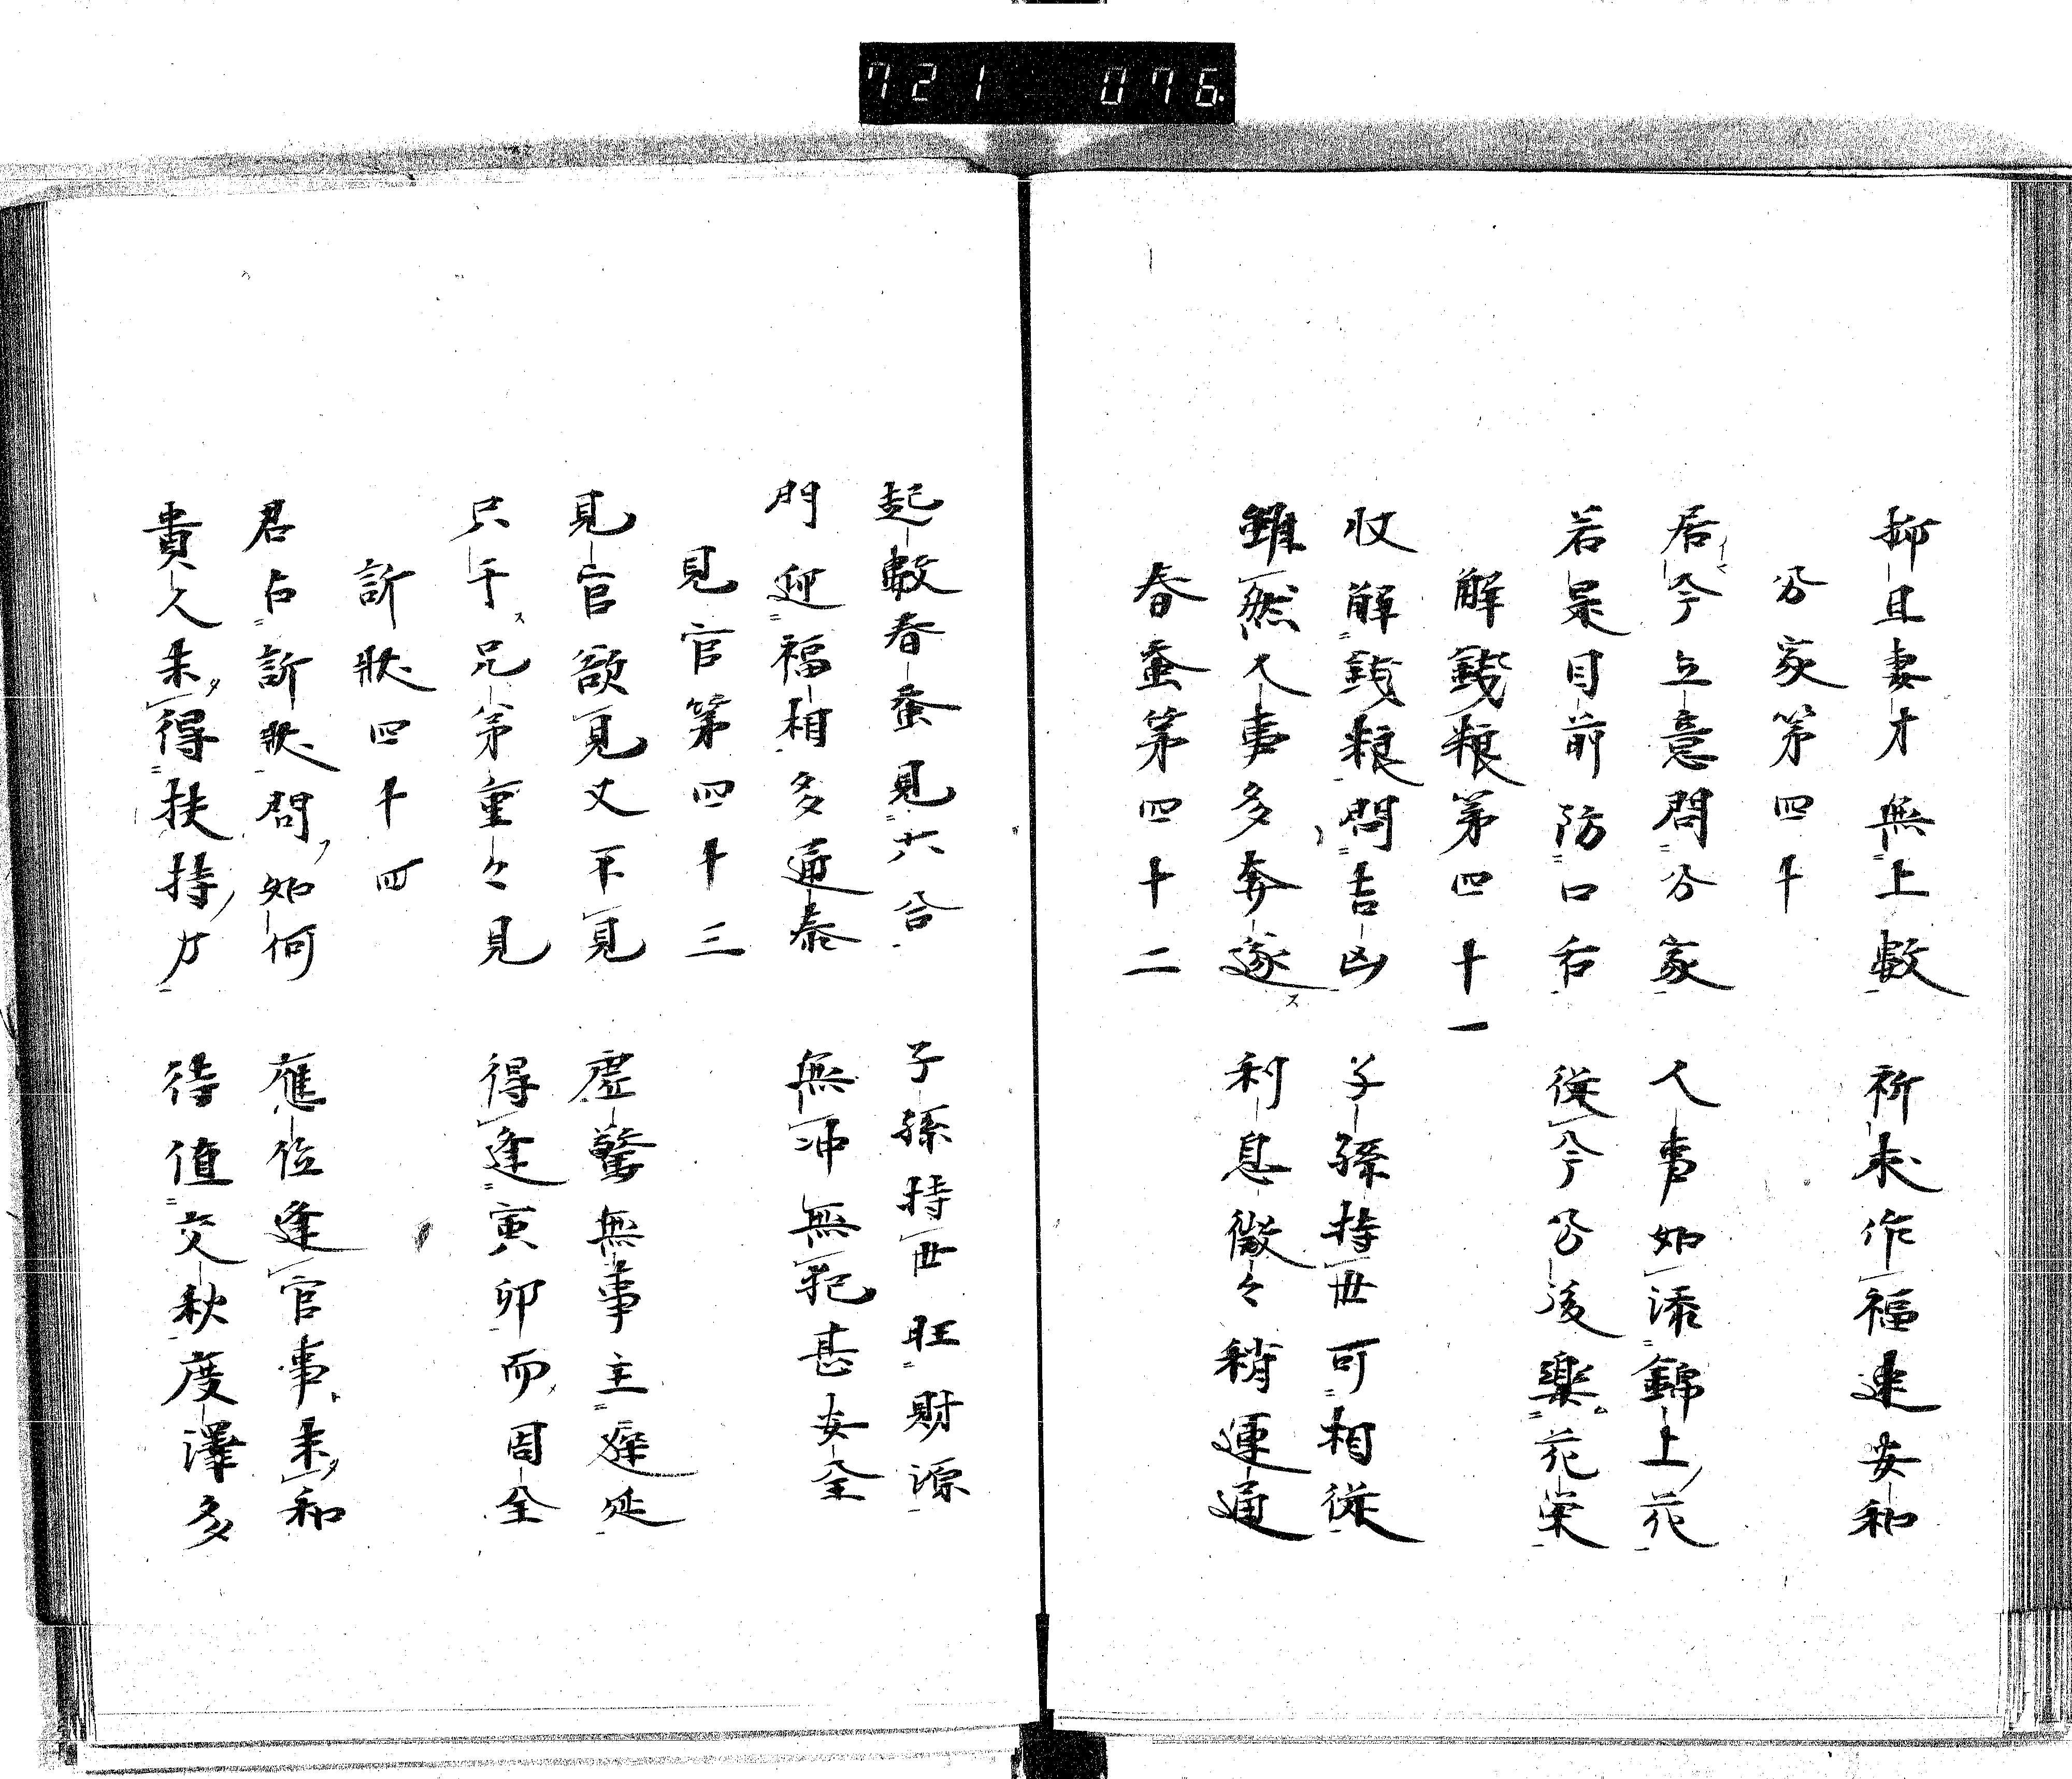 721 076.
抑且妻才無上數　祈求作福速安和
分家第四十
居今立意問分家　人事如添錦上花
若是目前防口舌　従今分後楽花栄
解銭粮第四十一
収解銭粮問吉凶　子孫持世可相従
雖然人事多奔逐　利息微々稍運通
春蚕第四十二
起數春蚕見六合　子孫持世旺財源
門迎福相多通泰　無冲無犯甚安全
見官第四十三
見官欲見又不見　虚驚無事主遅延
只于兄第重々見　得逢寅卯而周全
訴状四十四
君占訴状問如何　應位逢官事未和
貴人未得扶持力　待値交秋度澤多